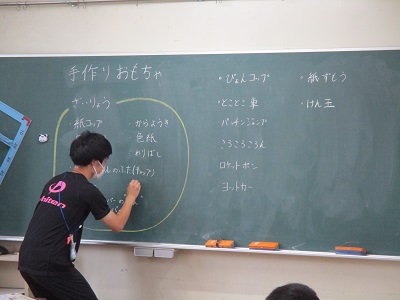 手作りおもちゃ
ざいりょう
・紙コップ
・からようき
色紙
わりばし
のふた(キャップ)
・ぴょんコップ
・とことこ車
・パッチンジャンプ
・ころころころん
・ロケットポン
・ヨットカー
・紙ずもう
・けん玉